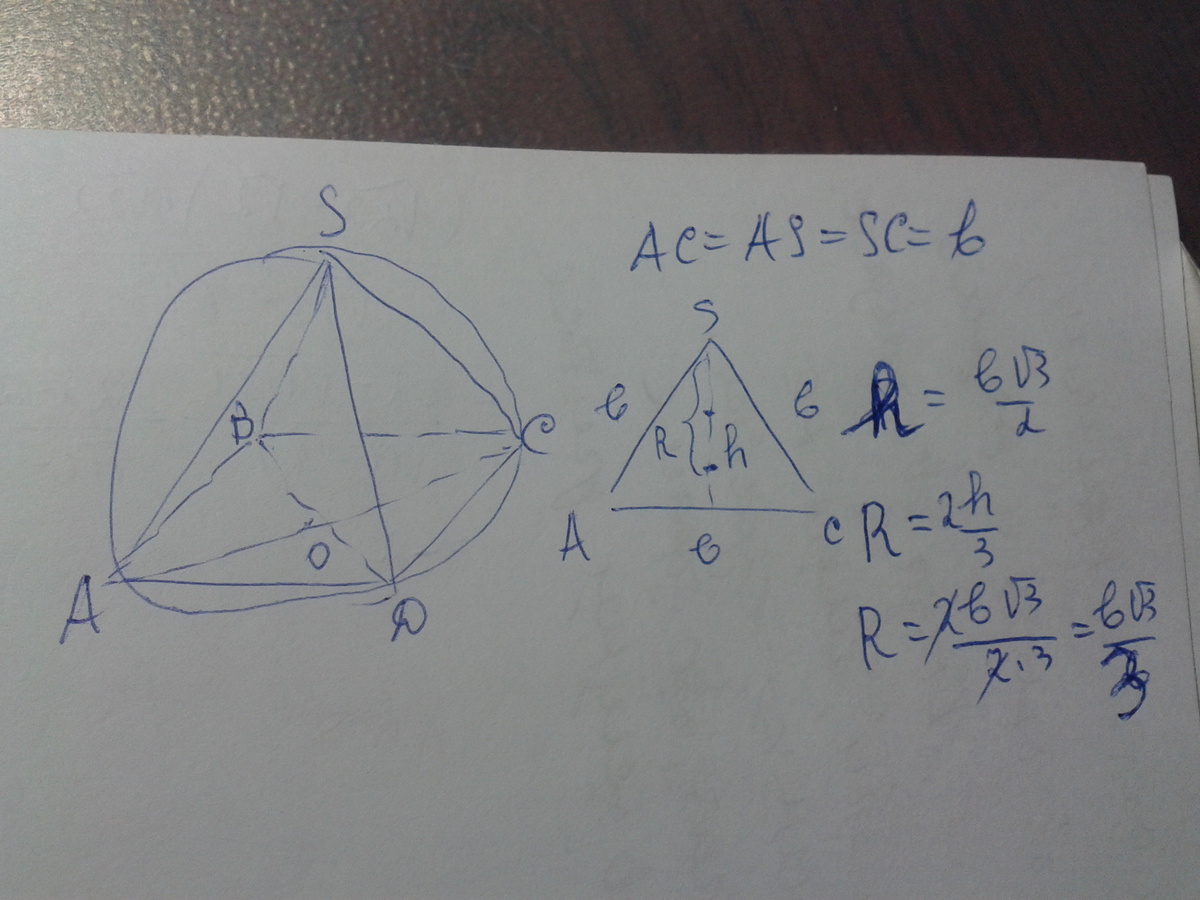 S
B
C
O
A
D
AC = AS = SC = b
S
b
b
R
h
A
b
C
h = b√3/2
R = 2h/3
R = 2b√3/2·3 = b√3/3